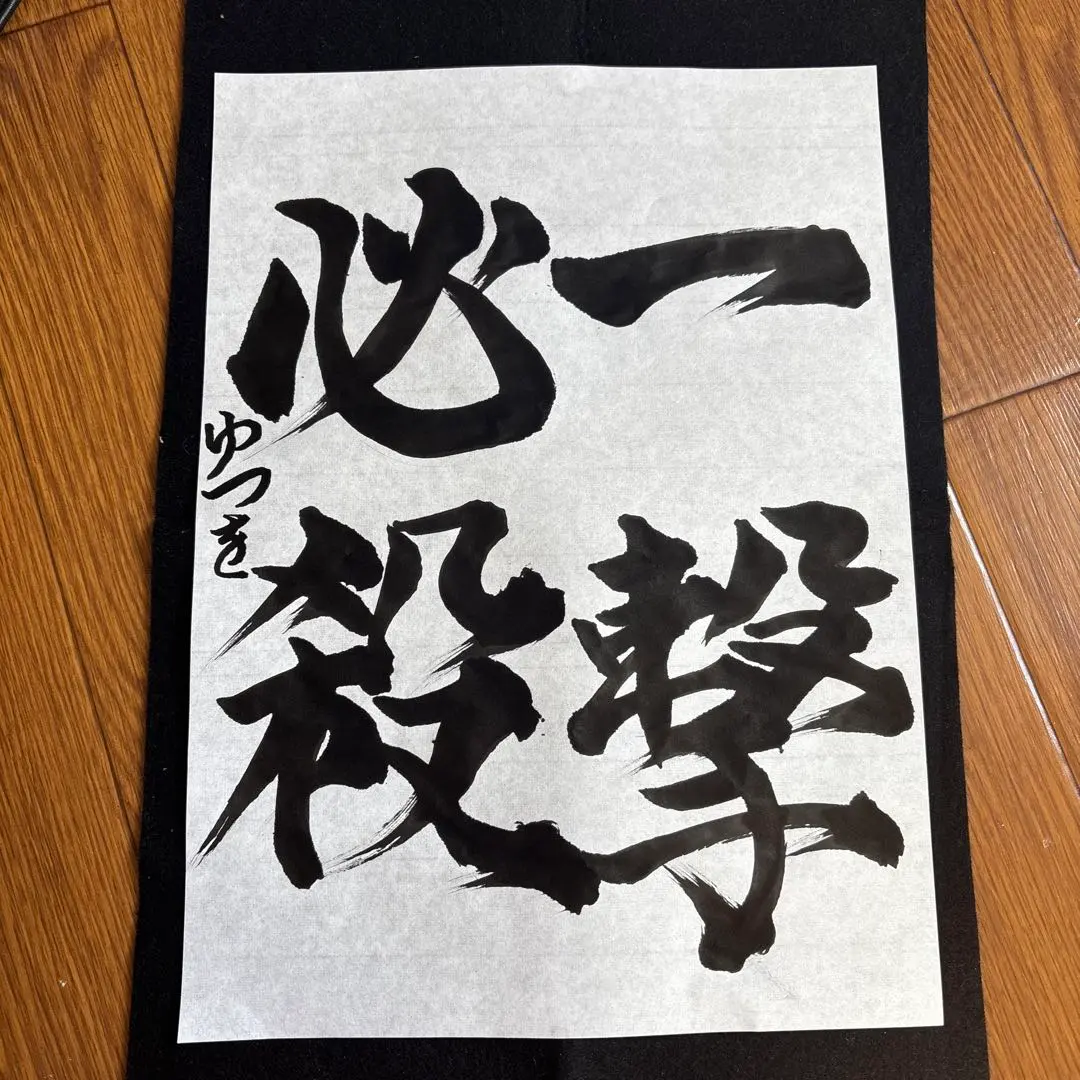 一撃
必殺
ゆつを